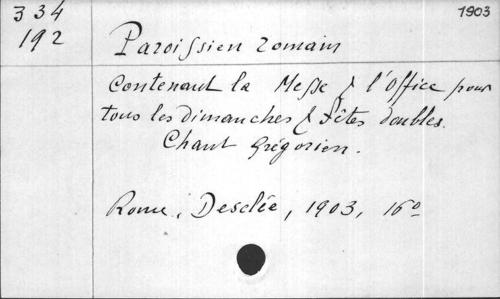 334
192
1903
Paroissien romain
Contenant la Messe & l'Office pour
tous les dimanches & Fêtes doubles.
Chant grégorien.
Rome, Desclée, 1903, 16º